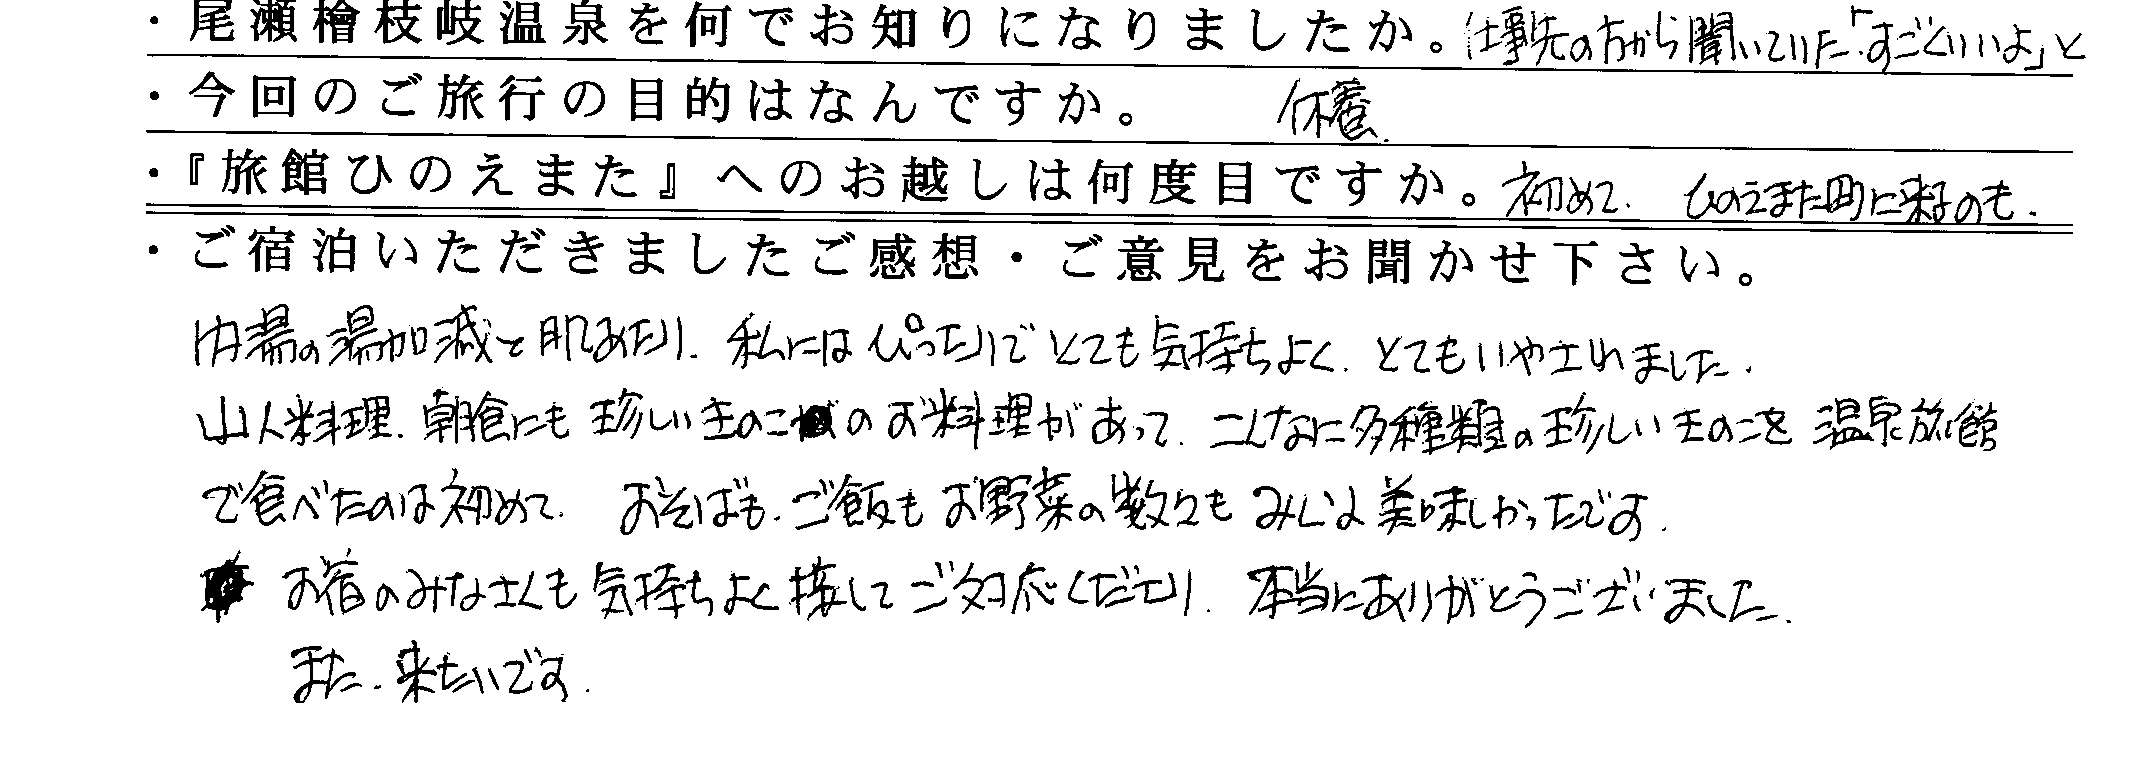 ・尾瀬檜枝岐温泉を何でお知りになりましたか。仕事先の方から聞いていた「すごくいいよ」と
・今回のご旅行の目的はなんですか。 休養.
・『旅館ひのえまた』へのお越しは何度目ですか。初めて. ひのえまた町に来るのも.
・ご宿泊いただきましたご感想・ご意見をお聞かせ下さい。
内湯の湯加減と肌あたり. 私にはぴったりでとても気持ちよく. とてもいやされました.
山人料理. 朝食にも珍しいきのこのお料理があって. こんなに多種類の珍しいきのこを温泉旅館
で食べたのは初めて. おそばも. ご飯もお野菜の数々もみんな美味しかったです.
お宿のみなさんも気持ちよく接してご対応くださり. 本当にありがとうございました.
また. 来たいです.